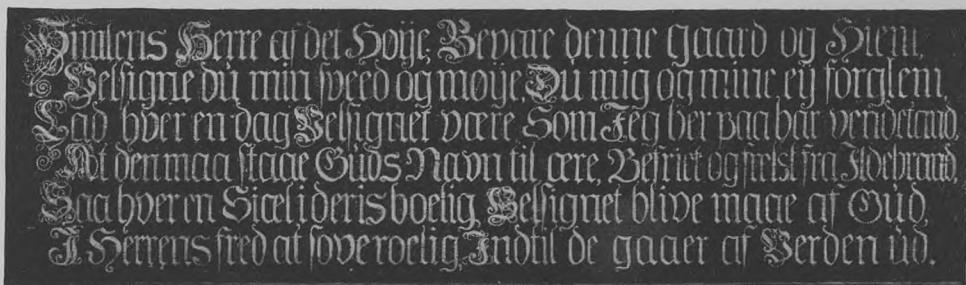 Himlens Herre af det Høije, Bevare denne Gaard og Hiem,
Velsigne dü min sveed og møije, Du mig og mine ey forglem,
Lad hver en dag Velsignet være Som Jeg her paa har vendet
At den maa staae Güds Navn til ære, Befriet og frelst fra Ildebrand,
Saa hver en Siæl i deris boelig, Velsignet blive maae af Gud,
I Herrens fred at sove roelig, Indtil de gaaer af Verden üd.